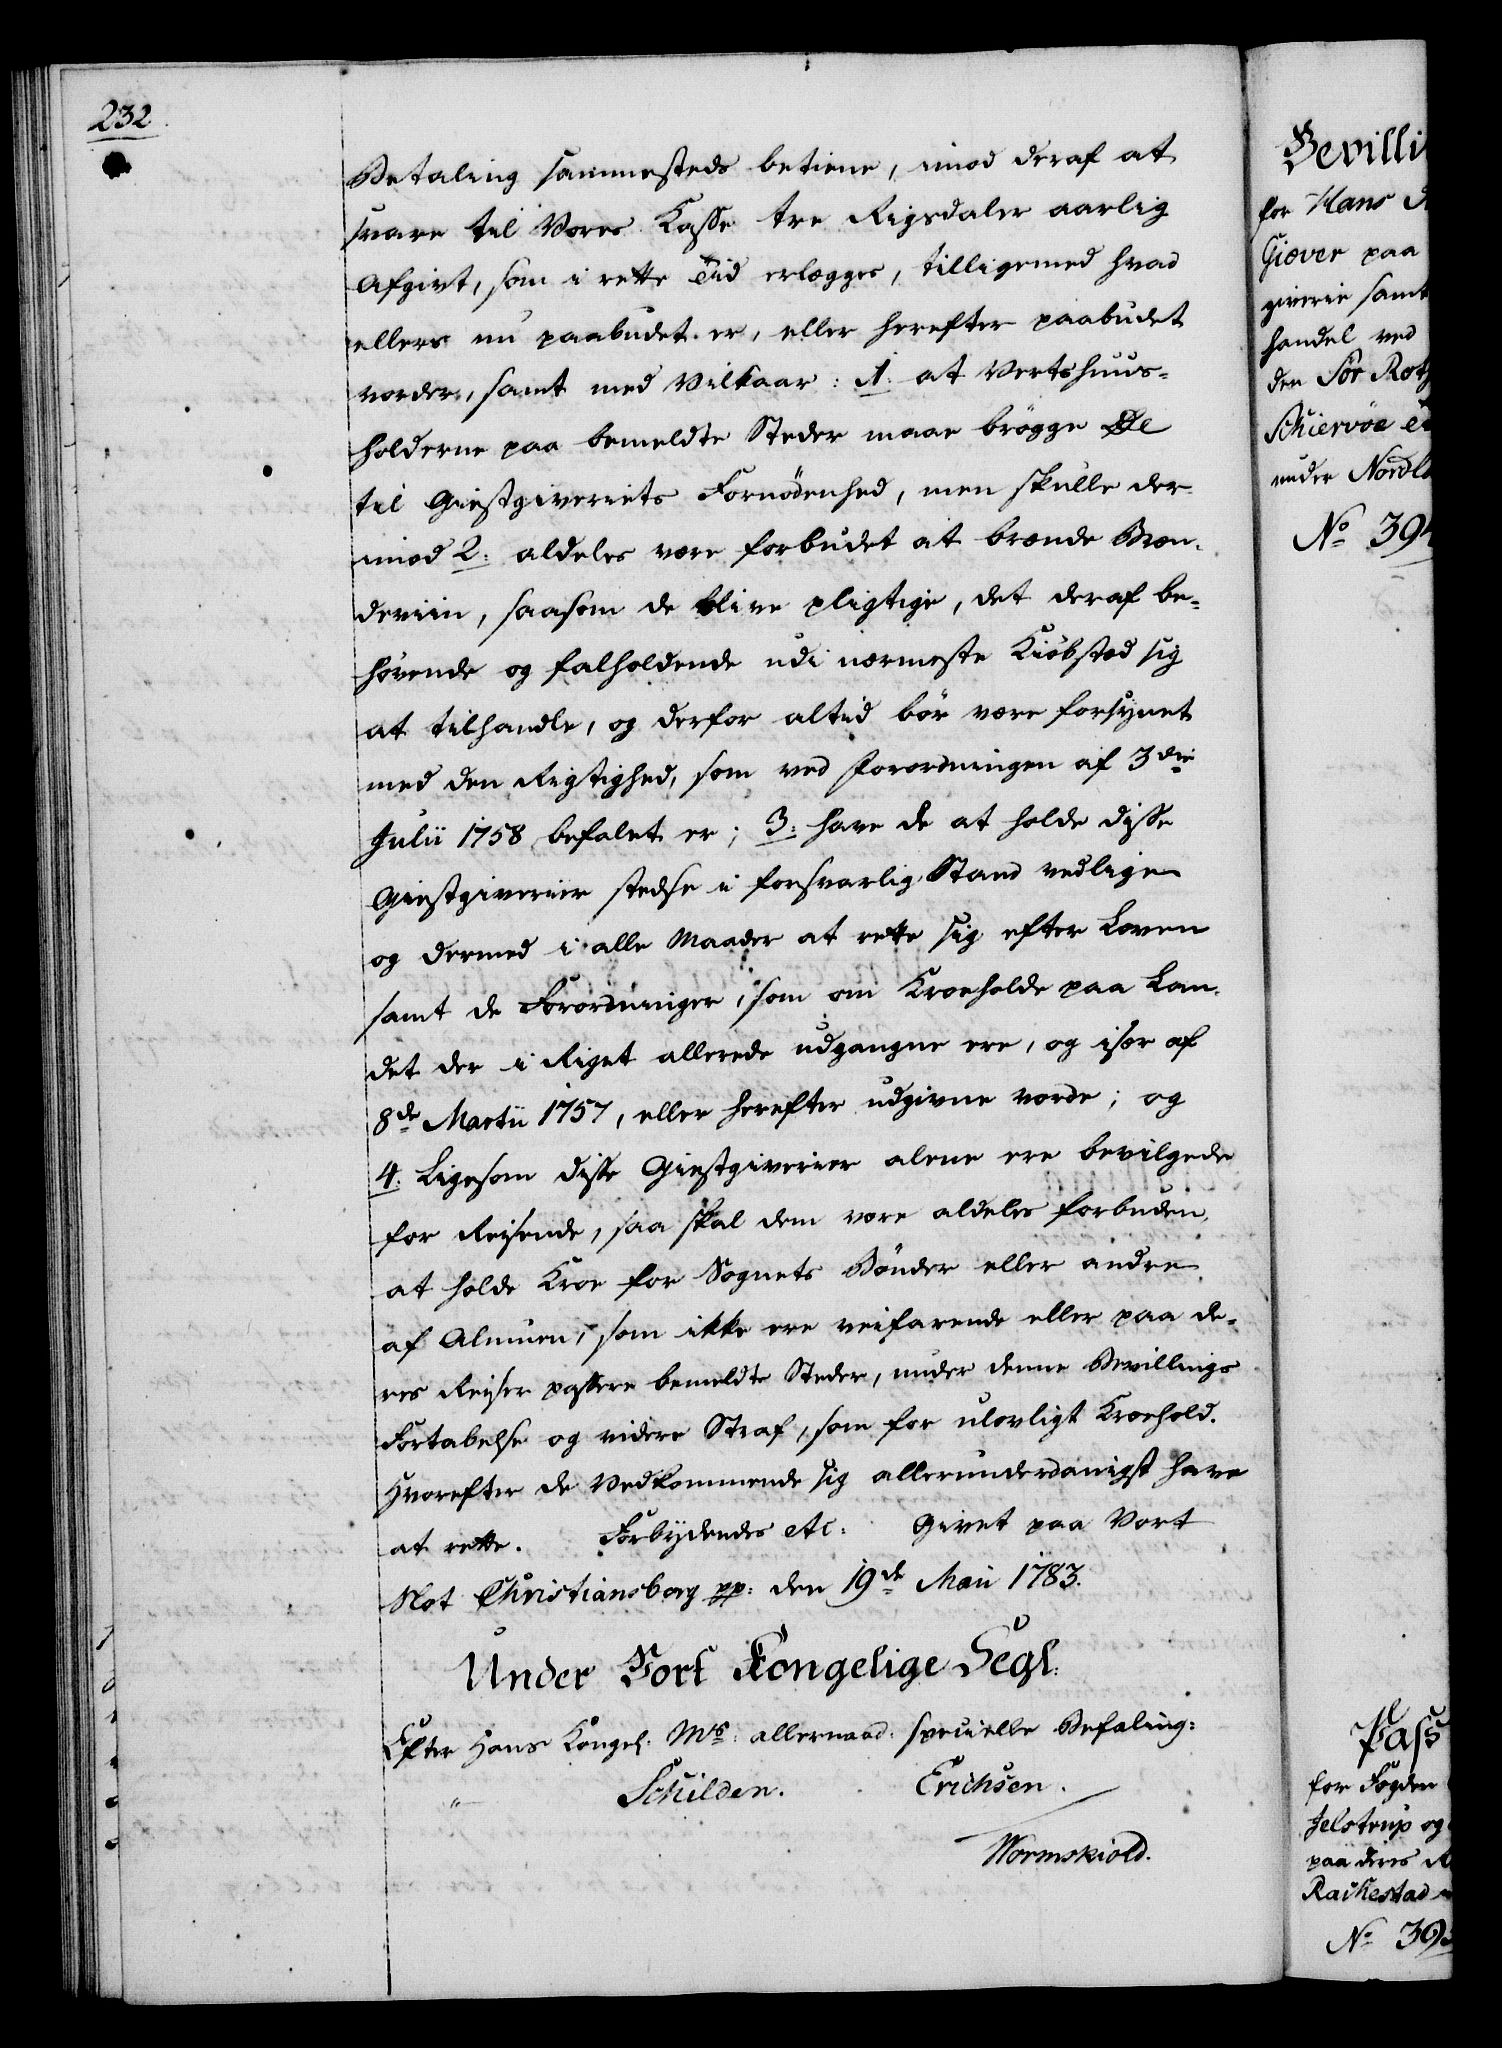 232
Betaling sammesteds betiene, imod deraf at
svare til Vores Casse tre Rigsdaler aarlig
Afgivt, som i rette Tid erlægges, tilligemed hvad
ellers nu paabudet er, eller herefter paabudet
vorder, samt med Vilkaar: 1. at Vertshuus-
holderne paa bemeldte Steder maae brøgge Øl
til Giestgiveriets Fornødenhed, men skulle der-
imod 2: aldeles være forbudet at brænde Bræn-
deviin, saasom de blive pligtige, det deraf be-
høvende og falholdende udi nærmeste Kiøbsted sig
at tilhandle, og derfor altid bør være forsynet
med den Rigtighed, som ved Forordningen af 3die
Julii 1758 befalet er; 3: have de at holde disse
Giestgiverier stedse i forsvarlig Stand vedlige
og dermed i alle Maader at rette sig efter Loven
samt de Forordninger, som om Kroehold paa Lan-
det der i Riget allerede udgangne ere, og især af
8de Martii 1757, eller herefter udgivne vorde; og
4. Ligesom disse Giestgiverier alene ere bevilgede
for Reisende, saa skal dem være aldeles forbuden,
at holde Kroe for Sognets Bønder eller andre
af Almuen, som ikke ere veifarende eller paa de-
res Reiser passere bemeldte Steder, under denne Bevillings
Fortabelse og videre Straf, som for ulovligt Kroehold.
Hvorefter de Vedkommende sig allerunderdanigst have
at rette. Forbydendes etc: Givet paa Vort
Slot Christiansborg pp: den 19de Maii 1783.
Under Vort Kongelige Segl.
Efter Hans Kongel: Mts: allernaad: specielle Befaling:
" Schilden. Erichsen.
Wormskiold.
Bevilli
for Hans
Giæver paa
giverie samt
handel ved
den Sør
Schiervøe
under Nordla
No 394
Pass
for Fogden
Jelstrup og
paa deres
Rackestad
No 395